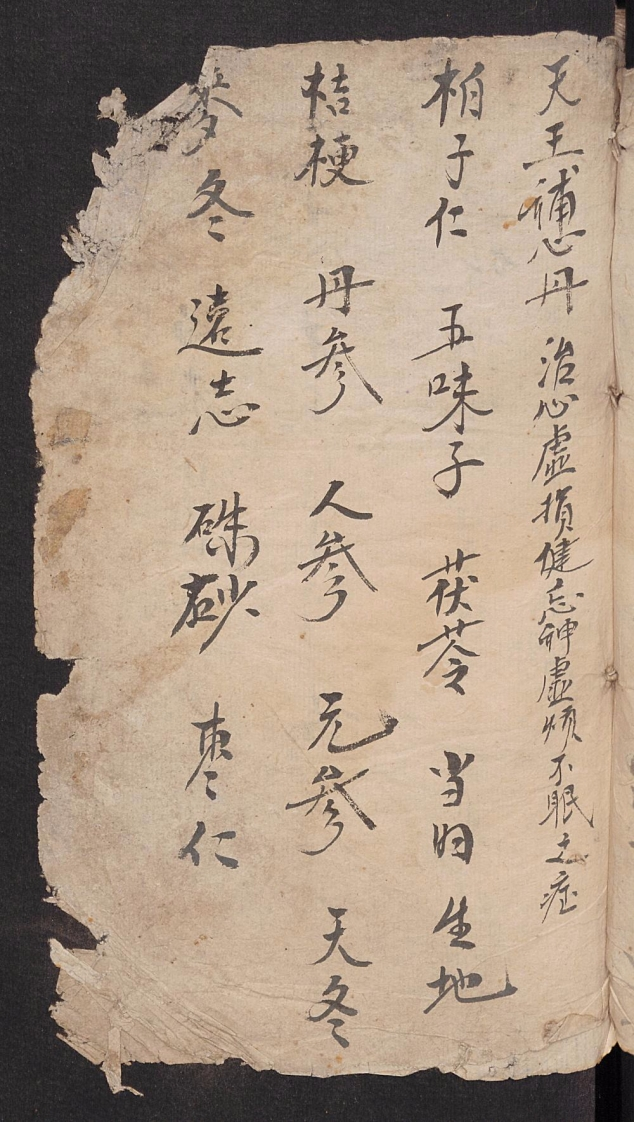 天王補心丹 治心虛損健忘神虛煩不眠之症
柏子仁 五味子 茯苓 当归 生地
桔梗 丹參 人參 元參 天冬
麥冬 遠志 硃砂 枣仁